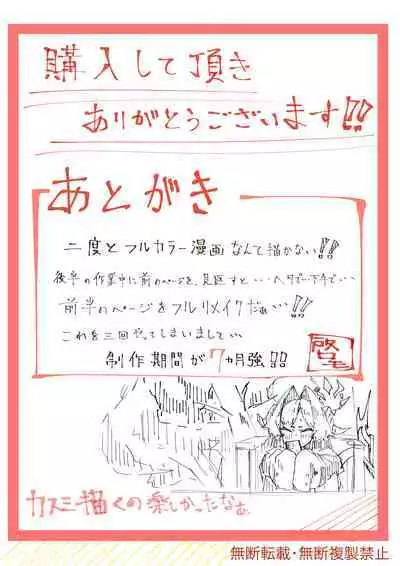 購入して頂き
ありがとうございます!!
あとがき
二度とフルカラー漫画なんて描かない!!
後半の作業中に前のページを見返すと・・・ヘタで下手で・・・
前半のページをフルリメイクだぁ・・・!!
これを三回やってしまいまして・・・
制作期間が7ヵ月強!!
カスミ描くの楽しかったなぁ
無断転載・無断複製禁止